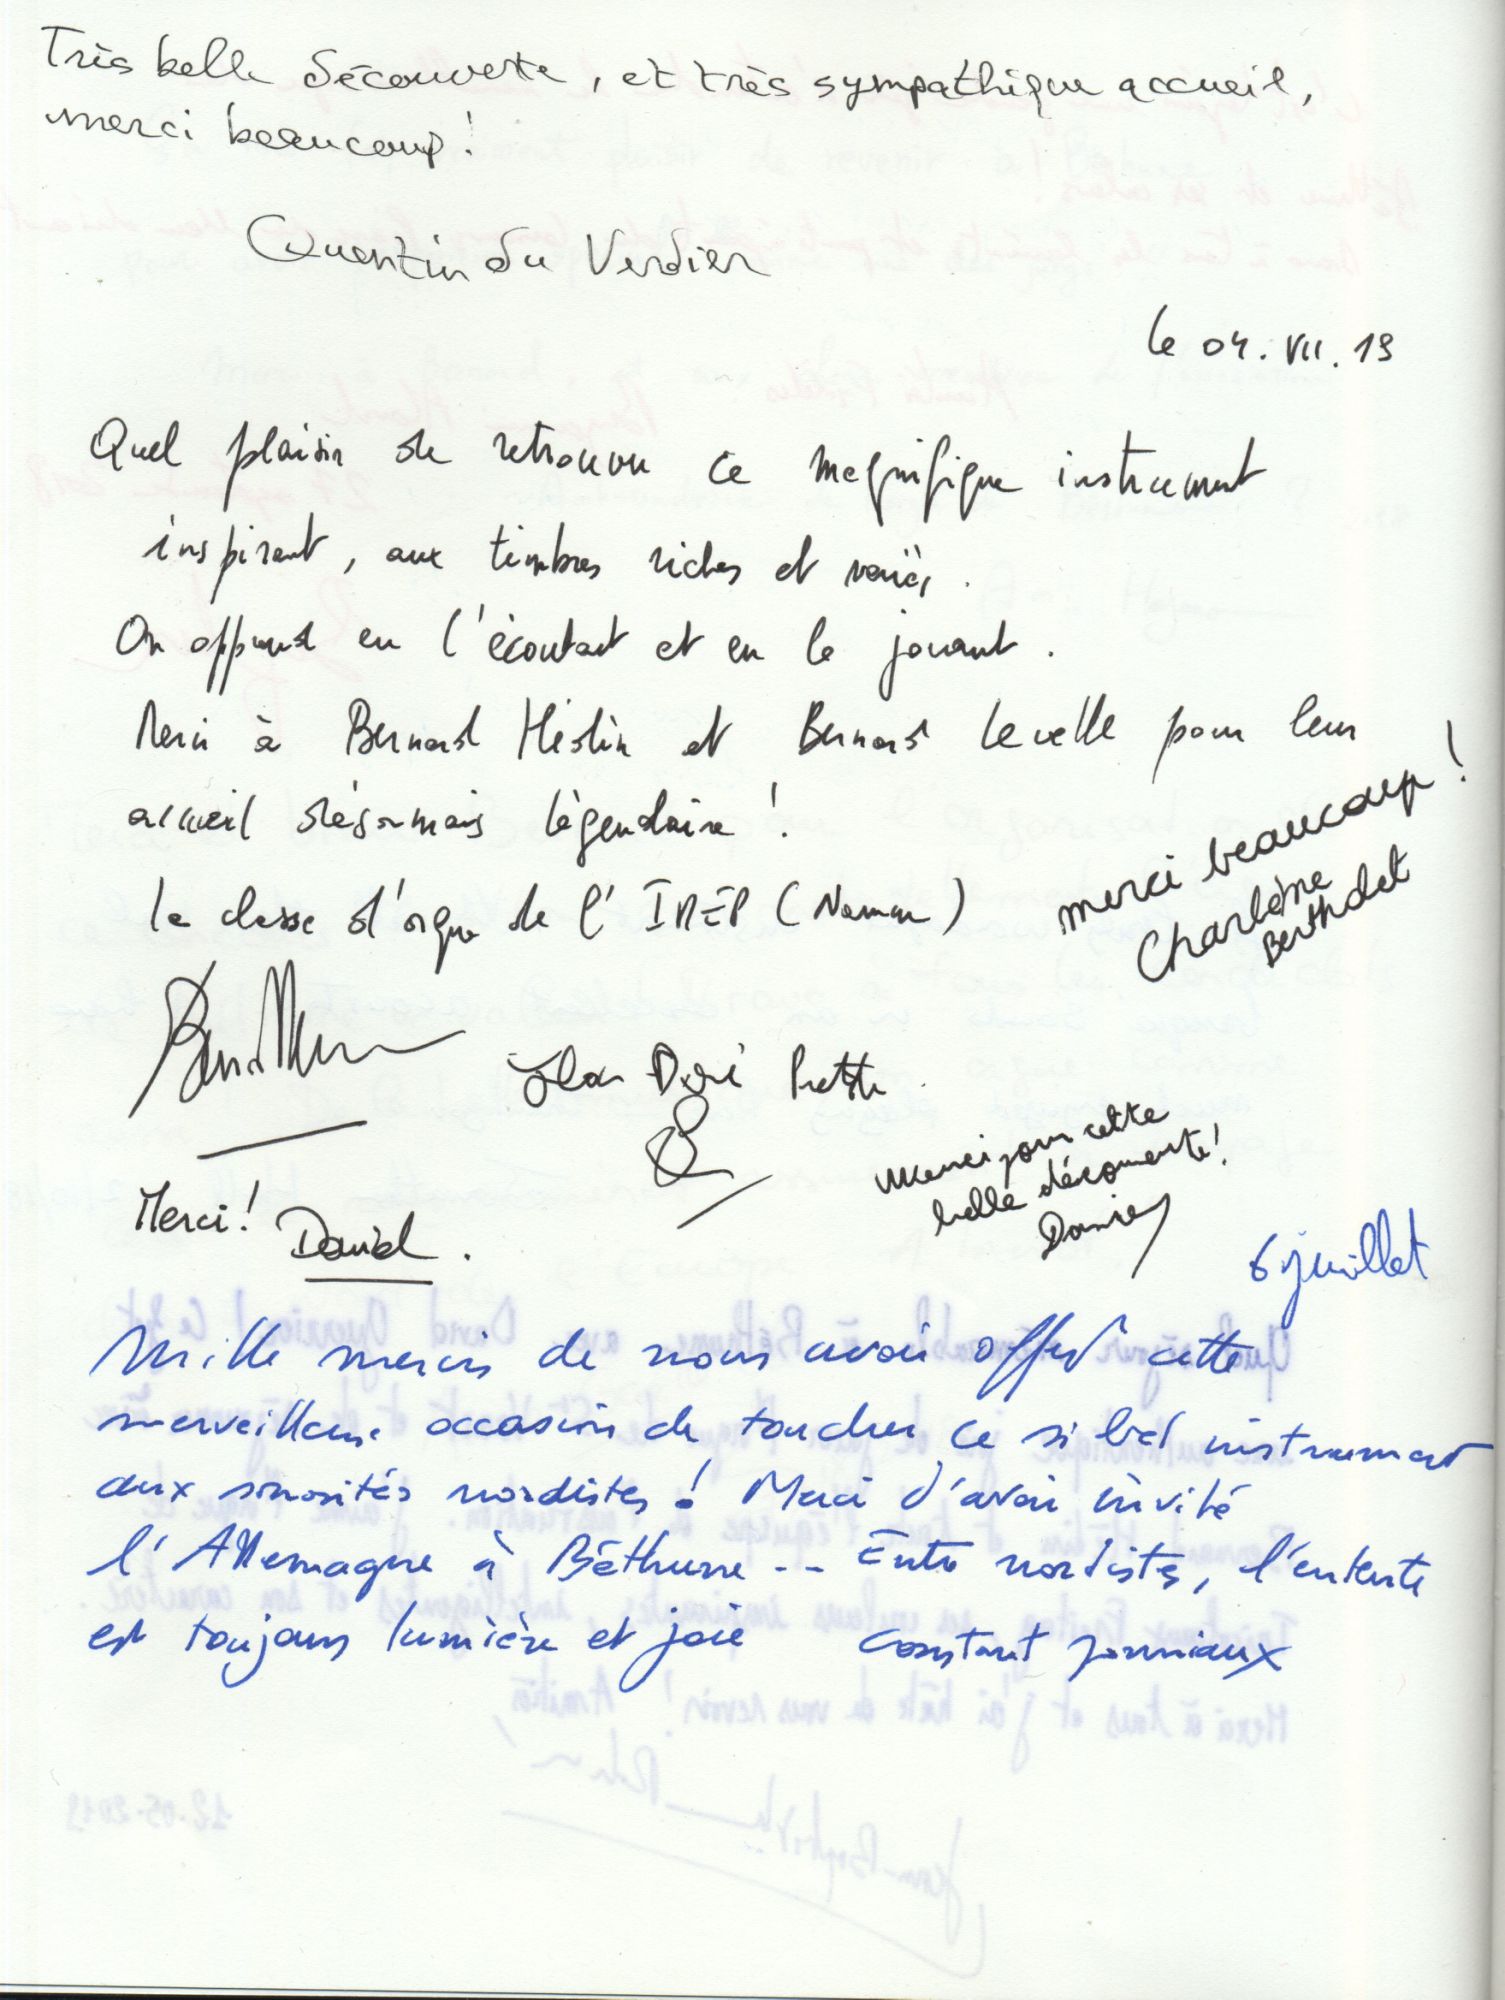 Très belle découverte, et très sympathique accueil,
merci beaucoup!
Quentin du Verdier
le 04.VII.19
Quel plaisir de retrouver ce magnifique instrument
inspirant, aux timbres riches et variés.
On apprend en l'écoutant et en le jouant.
Merci à Bernard Hédin et Bernard Levelle pour leur
accueil désormais légendaire!
la classe d'orgue de l'IMEP (Namur)
merci beaucoup!
Charlène
Berthdet
Merci pour cette
belle découverte!
Merci!
David.
6 juillet
Mille mercis de nous avoir offert cette
merveilleuse occasion de toucher ce si bel instrument
aux sonorités nordistes! Merci d'avoir invité
l'Allemagne à Béthune... Entre nordistes, l'entente
est toujours lumière et joie Constant